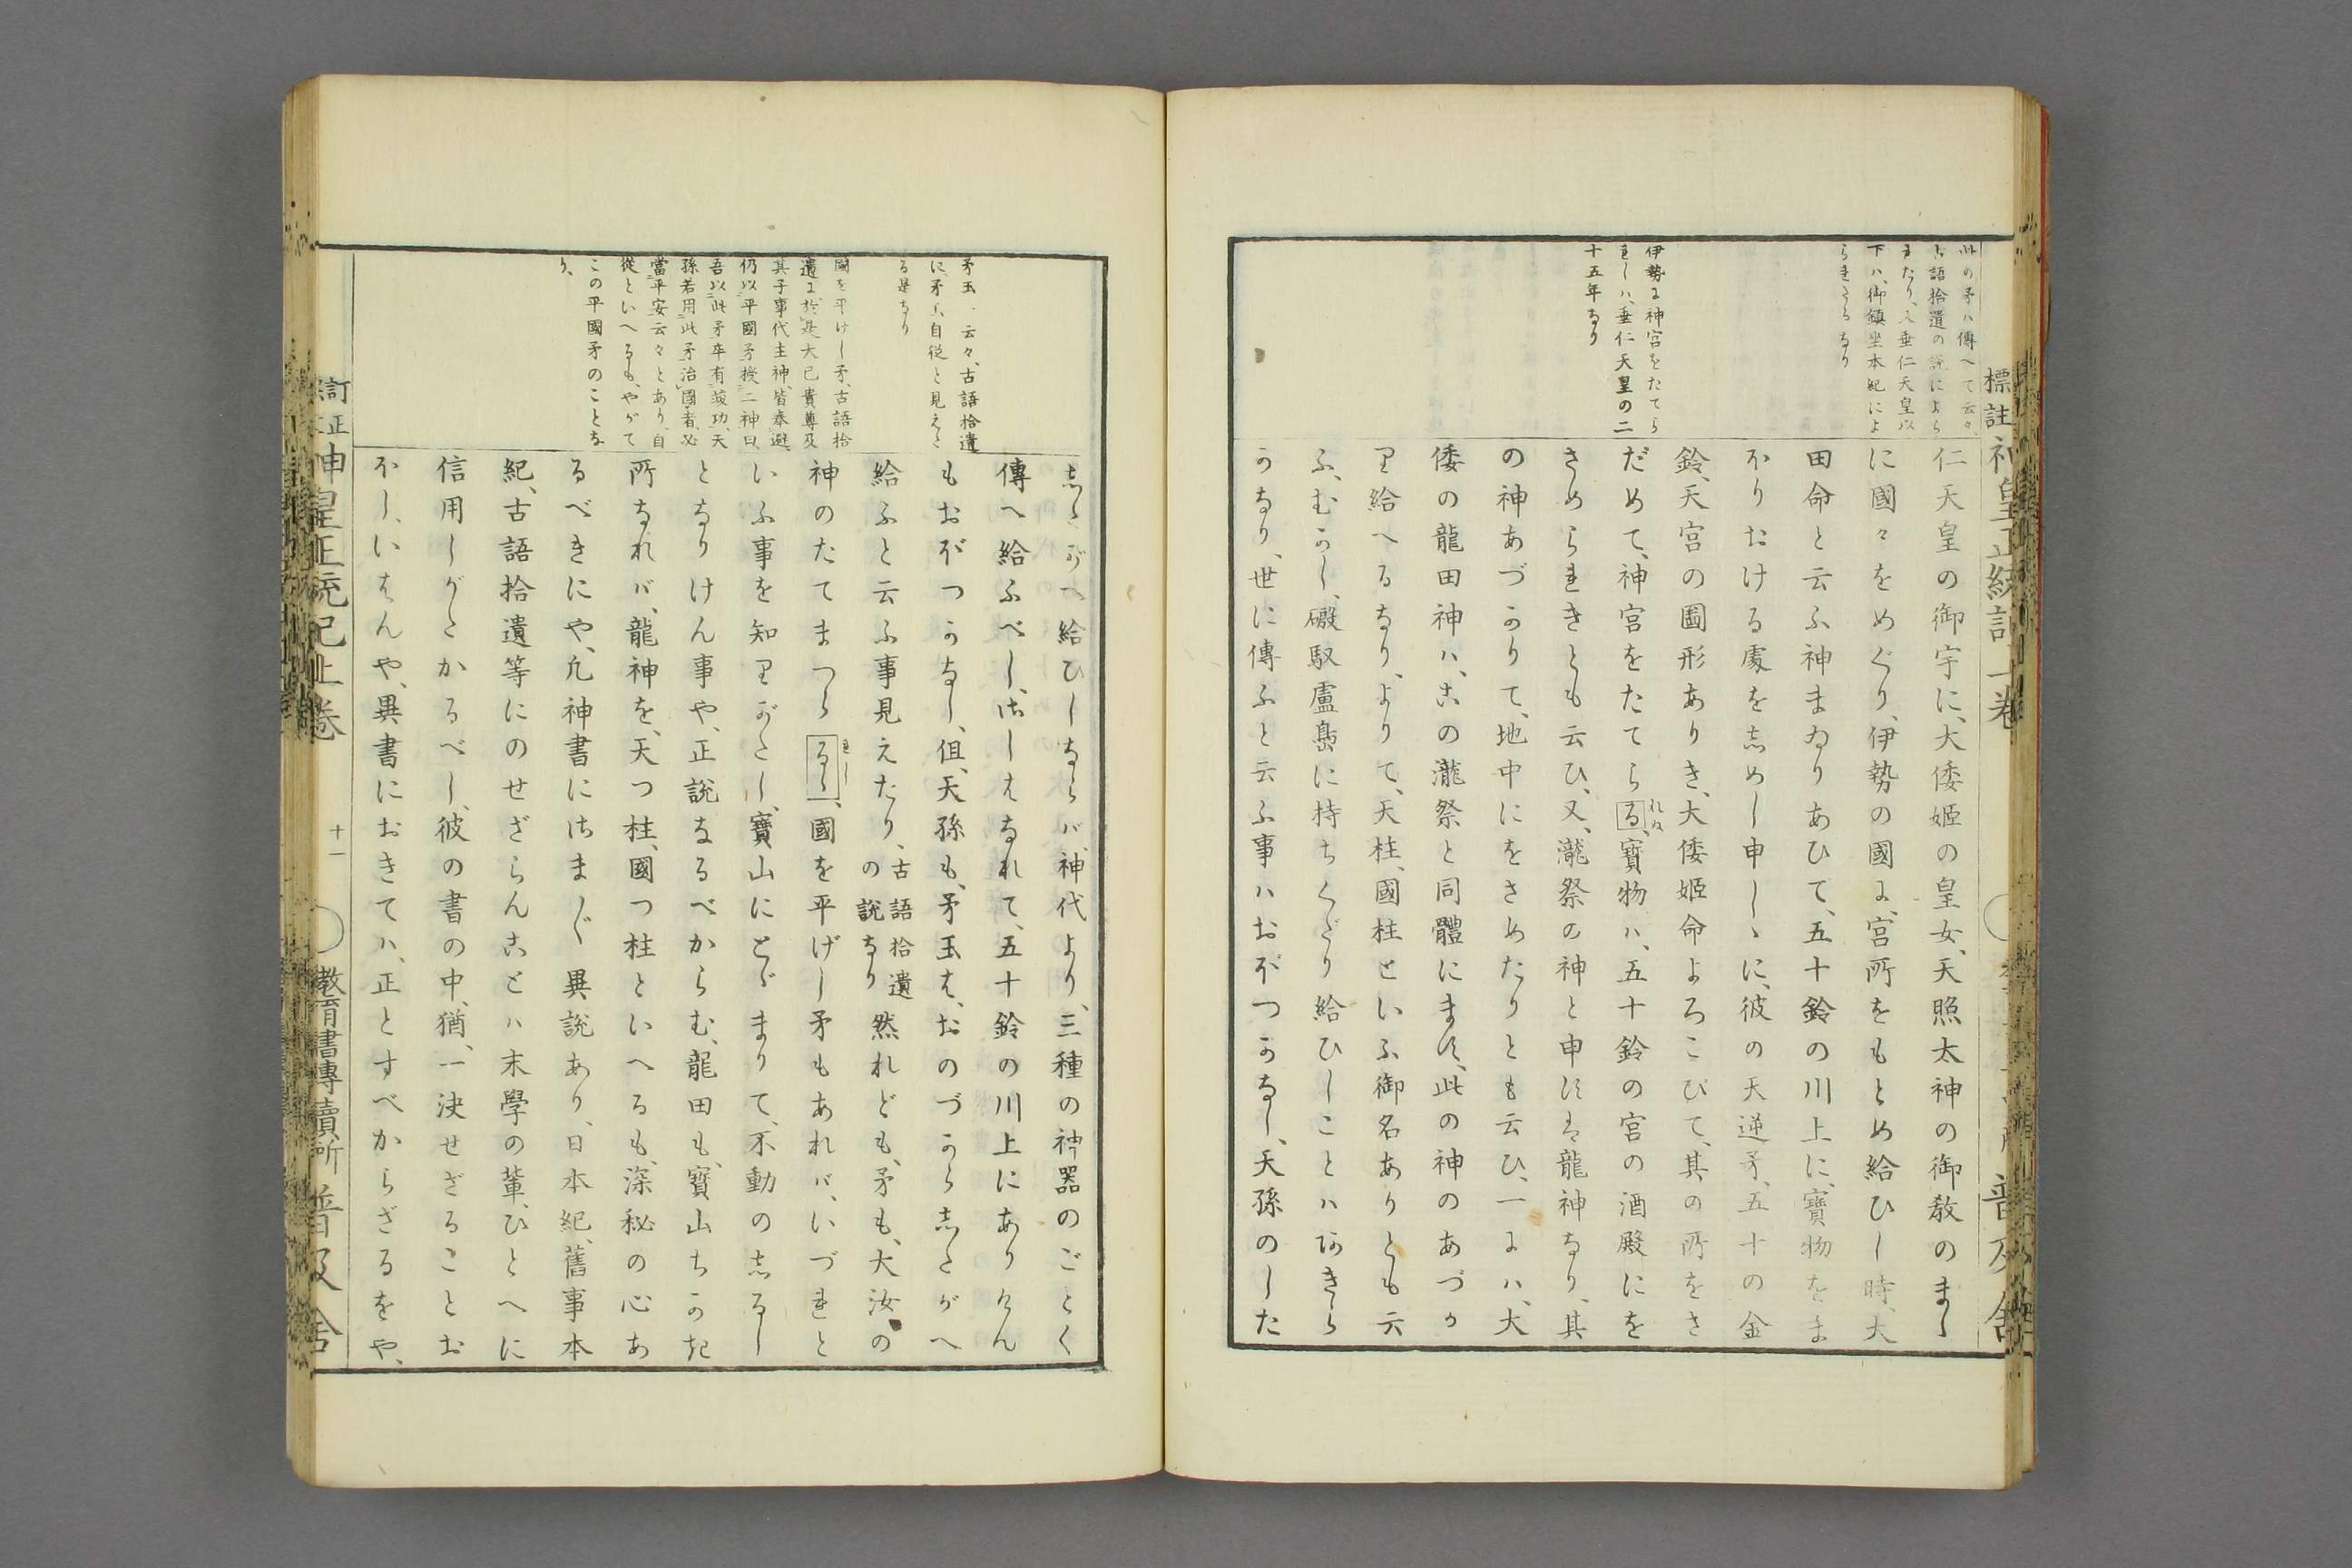 標註神皇正統記上卷
此の矛ハ傳へて云々、
古語拾遺の説によら
れたり、又垂仁天皇以
下ハ、御鎮坐本紀によ
られたるなり
伊勢に神宮をたてら
れしハ、垂仁天皇の二
十五年なり
仁天皇の御宇に、大倭姫の皇女、天照太神の御教のまゝ
に國々をめぐり、伊勢の國に、宮所をもとめ給ひし時、大
田命と云ふ神まゐりあひて、五十鈴の川上に、寶物をま
ほりおける處を志めし申しゝに、彼の天逆矛、五十の金
鈴、天宮の圖形ありき、大倭姫命よろこびて、其の所をさ
だめて、神宮をたてらる、寶物ハ、五十鈴の宮の酒殿にを
れぬ
さめられきとも云ひ、又、瀧祭の神と申すは龍神なり、其
の神あづかりて、地中にをさめたりとも云ひ、一にハ、大
倭の龍田神ハ、この瀧祭と同體にます、此の神のあづか
り給へるなり、よりて、天柱、國柱といふ御名ありとも云
ふ、むかし、磤馭盧島に持ちくだり給ひしことハあきら
かなり、世に傳ふと云ふ事ハおぼつかなし、天孫のした
矛玉、云々、古語拾遺
に、矛玉自從と見えた
る是なり
國を平けし矛、古語拾
遺に、於是大己貴尊及
其子事代主神、皆奉避、
仍以平國矛授二神曰、
吾以此矛卒有治功、天
孫若用此矛治國者、必
當平安云々とあり、自
從といへるも、やがて
この平國矛のことな
り、
志たがへ給ひしならバ、神代より、三種の神器のごとく
傳へ給ふべし、さしはなれて、五十鈴の川上にありけん
もおぼつかなし、但、天孫も、矛玉は、おのづから志たがへ
給ふと云ふ事見えたり、古語拾遺の説なり 然れども、矛も、大汝の
神のたてまつらるゝ、國を平げし矛もあれバ、いづれと
れし
いふ事を知りがたし、寶山にとゞまりて、不動の志るし
となりけん事や、正説なるべからむ、龍田も、寶山ちかき
所なれバ、龍神を、天つ柱、國つ柱といへるも、深秘の心あ
るべきにや、凡神書にさま〴〵異説あり、日本紀、舊事本
紀、古語拾遺等にのせざらんことハ末學の輩、ひとへに
信用しがたかるべし、彼の書の中、猶、一決せざることお
ほし、いはんや、異書におきてハ、正とすべからざるをや、
訂正標註神皇正統記上卷
十一
教育書專賣所 普及舍